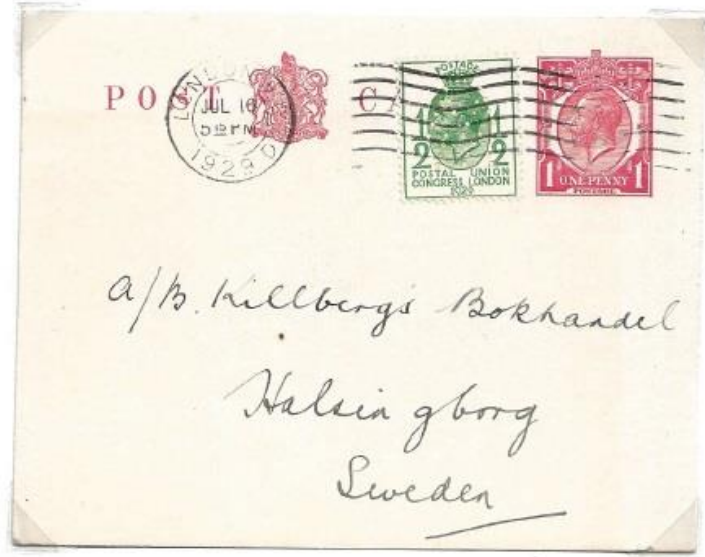 POST CA
LONDON
JUL 16
5 15 PM
1929
POSTAGE
1/2 1/2
POSTAL UNION
CONGRESS LONDON
1929
1 ONE PENNY 1
POSTAGE
A/B. Killberg's Bokhandel
Halsingborg
Sweden